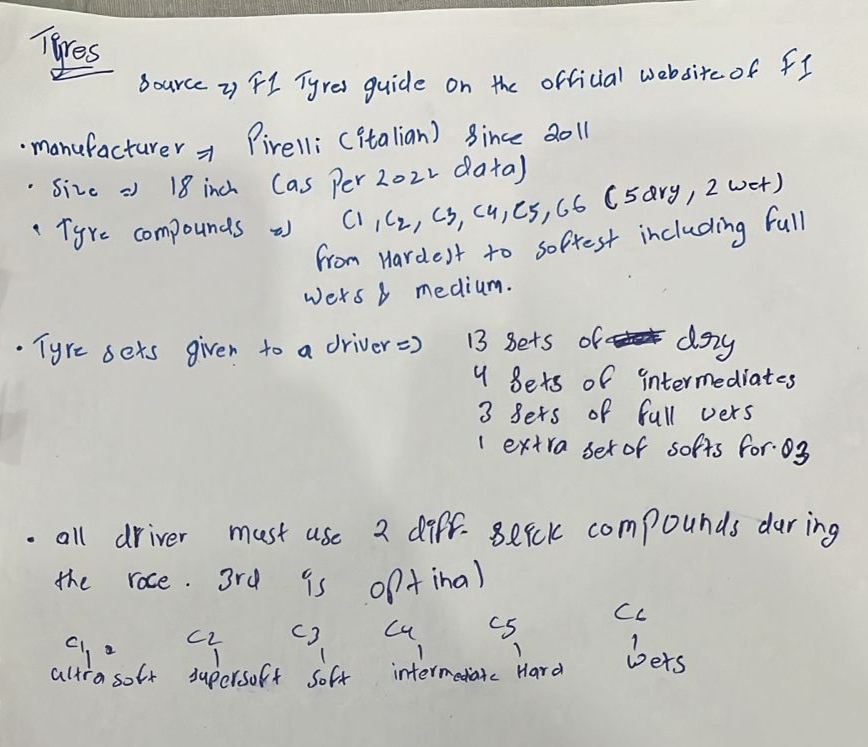 Tyres
Source => F1 Tyres guide on the official website of F1
• manufacturer => Pirelli (italian) since 2011
• Size => 18 inch (as per 2022 data)
• Tyre compounds => C1, C2, C3, C4, C5, C6 (5 dry, 2 wet)
from Hardest to softest including full
wets & medium.
• Tyre sets given to a driver => 13 sets of dry
4 sets of intermediates
3 sets of full wets
1 extra set of softs for Q3
• all driver must use 2 diff. slick compounds during
the race. 3rd is optinal
C1 C2 C3 C4 C5 C6
ultra soft supersoft soft intermediate Hard wets